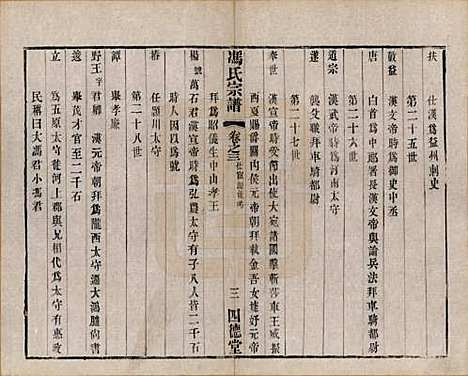 扶　仕漢爲益州刺史
第二十五世
敬益　漢文帝時爲御史中丞
唐　白首爲中郎署長漢文帝與論兵法拜車騎都尉
第二十六世
道宗　漢武帝時爲河南太守
遂　襲父職拜車騎都尉
第二十七世
奉世　漢宣帝時受命出使大宛諸國擊斬莎車王威振
西夏賜爵關內侯元帝朝拜執金吾女媛妤元帝
馮氏宗譜
卷之三
三
四德堂
拜爲昭儀生中山孝王
楊　號萬石君漢宣帝時爲弘農太守有子八人皆二千石
時人因以爲榮
椿　任潁川太守
第二十八世
譚　舉孝廉
野王　字君卿漢元帝朝拜爲隴西太守大鴻臚尚書
舉茂才官至二千石
立　爲五原太守徙河上郡與兄相代爲太守有惠政
民謠曰大馮君小馮君